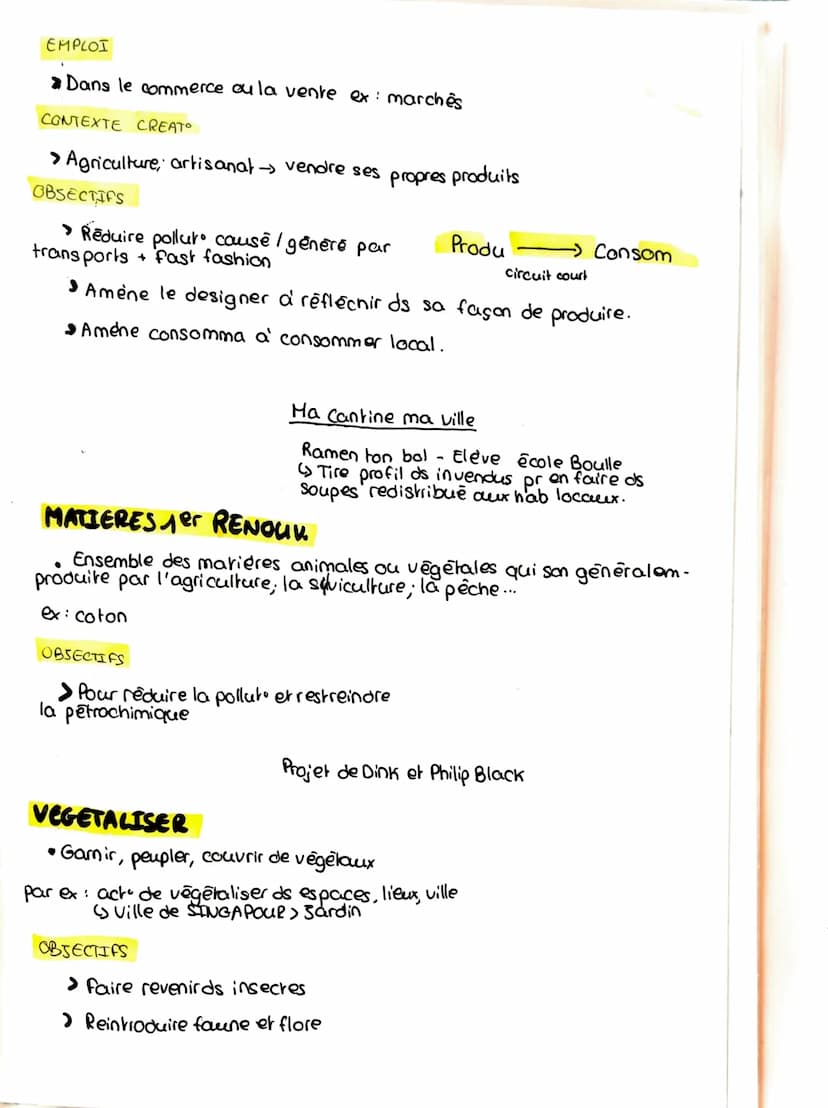 EMPLOI
> Dans le commerce ou la vente ex : marchés
CONTEXTE CREAT°
> Agriculture, artisanat → vendre ses propres produits
OBJECTIFS
> Réduire pollut° causé / généré par
transports + fast fashion
Produ → Consom
circuit court
> Amène le designer à réfléchir ds sa façon de produire.
> Amène consomma à consommer local.
Ma cantine ma ville
Ramen ton bol - Elève école Boulle
↳ Tire profil ds invendus pr en faire ds
soupes redistribué aux hab locaux.
MATIERES 1er RENOUV.
• Ensemble des matières animales ou végétales qui son généralem-
produite par l'agriculture, la sylviculture, la pêche...
ex : coton
OBJECTIFS
> Pour réduire la pollut° et restreindre
la pétrochimique
Projet de Dink et Philip Black
VEGETALISER
• Garnir, peupler, couvrir de végétaux
par ex : act° de végétaliser ds espaces, lieux, ville
↳ ville de SINGAPOUR > Jardin
OBJECTIFS
> Faire revenir ds insectes
> Reintroduire faune et flore